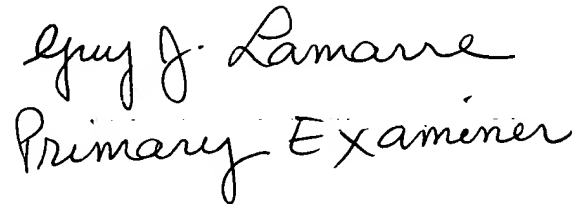 Guy J. Lamarre
Primary Examiner